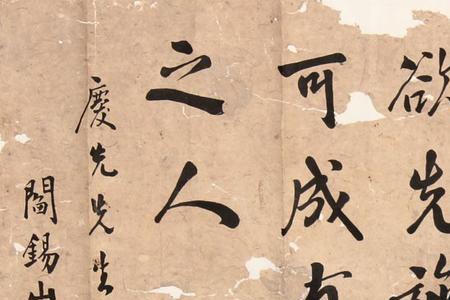 欲先
可成有
之人
慶先先生
閻錫山